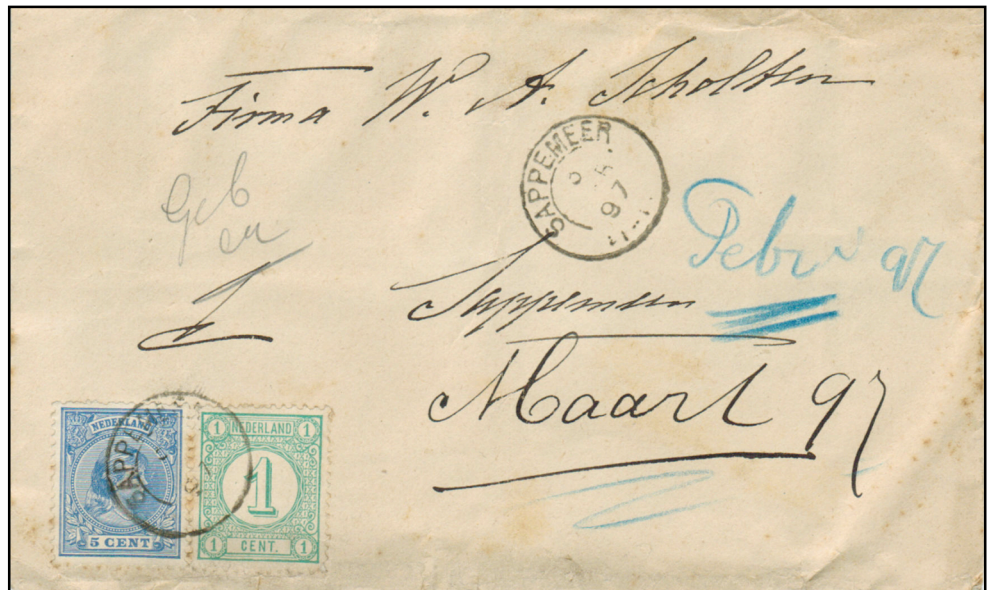 Firma W. A. Scholten
SAPPEMEER
97
Geb
Febr 97
Sappemeer
Maart 97
SAPPEMEER
NEDERLAND
5 CENT
1 NEDERLAND 1
1
1 CENT. 1